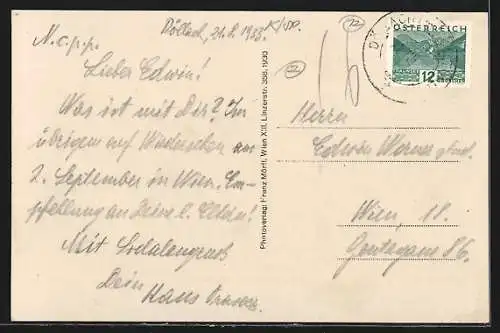 Döllach, 21.8.1933.
N.c.p.p.
Lieber Edwin!
Was ist mit Dir? Im
übrigen auf Wiedersehen am
2. September in Wien. Em-
pfehlung an Deine l. Eltern!
Mit Sodalengruß
Dein
Hans
Photoverlag Franz Mörtl, Wien XIII, Linzerstr. 386, 1930
12
12
ÖSTERREICH
12 GROSCHEN
Herrn
Edwin Werner
Wien, 18.
Gentzgasse 86.